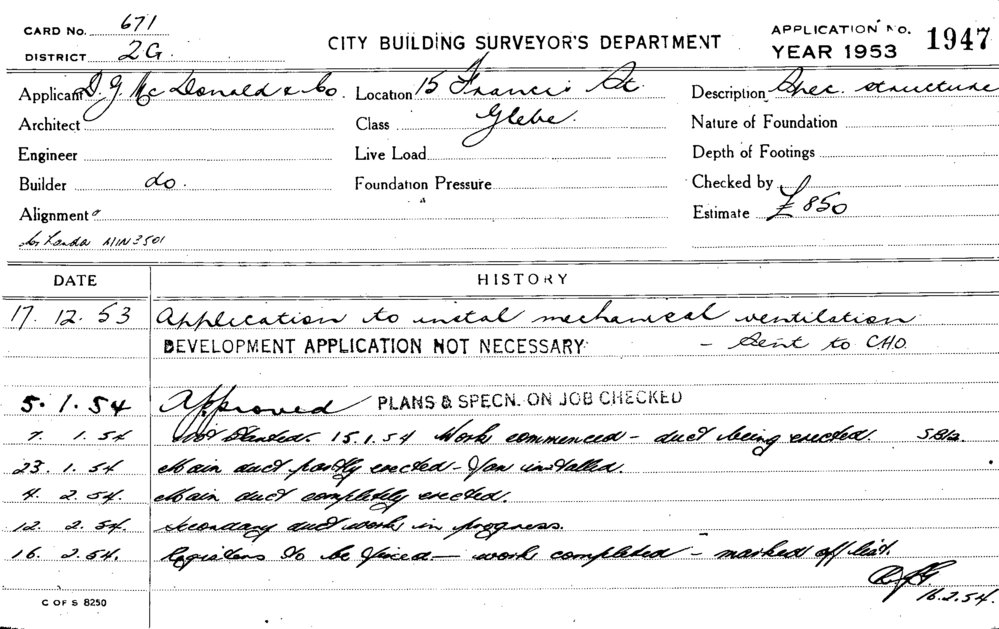 CARD No. 671
DISTRICT 2G.
CITY BUILDING SURVEYOR'S DEPARTMENT
APPLICATION No. 1947
YEAR 1953
Applicant D. J. McDonald & Co. Location 15 Francis St. Description Spec. structure
Architect Class Glebe. Nature of Foundation
Engineer Live Load Depth of Footings
Builder do. Foundation Pressure Checked by
Alignment Estimate £850
3501
DATE HISTORY
17. 12. 53 Application to instal mechanical ventilation
DEVELOPMENT APPLICATION NOT NECESSARY - Sent to C.H.O.
5. 1. 54 Approved PLANS & SPECN. ON JOB CHECKED
7. 1. 54 Not Started. 15.1.54 Work commenced - duct being erected.
23. 1. 54 Main duct partly erected - fan installed.
4. 2. 54. Main duct completely erected.
12. 2. 54. Secondary duct work in progress.
16. 2. 54. Registers to be fixed - work completed - marked off list.
16.2.54.
C OF S 8250